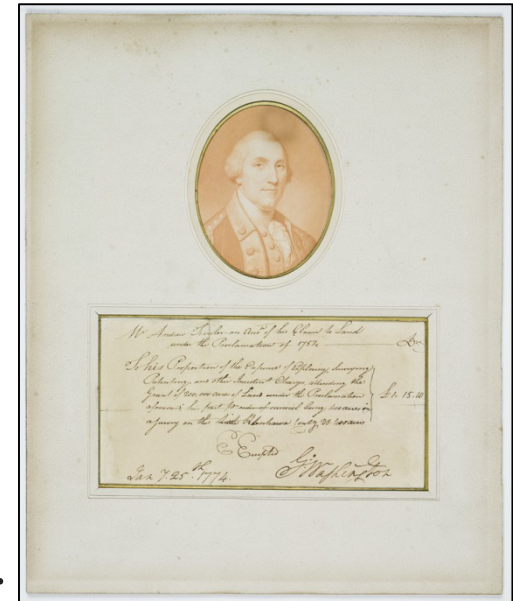 Mr Andrew Fowler on Acct of his Claim to Land
under the Proclamation of 1754 Dr
To his Proportion of the Expence of Exploring, Surveying
Patenting, and other Incident Charges attending the
Grant of 200,000 acres of Land under the Proclamation
aforesaid his part
a Survey on the Little Kanhawa £1.15.10
E Excepted
Jany 25th 1774. G Washington